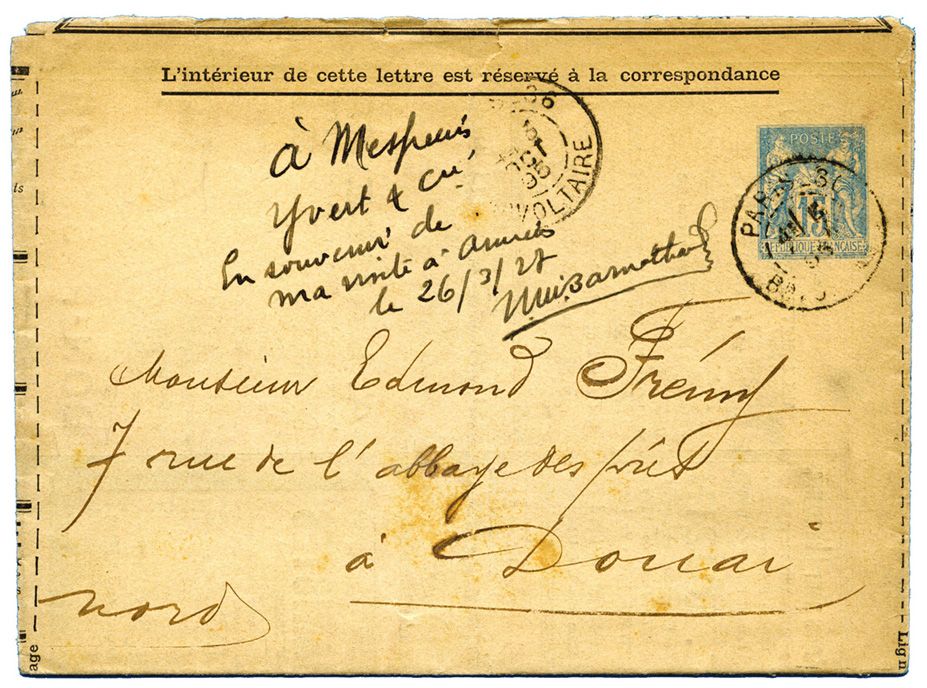 L'intérieur de cette lettre est réservé à la correspondance
à Messieurs
Yvert & Cie
En souvenir de
ma visite à Amiens
le 26/3/27
OCT
95
VOLTAIRE
POSTE
15
REPUBLIQUE FRANÇAISE
PARIS
Monsieur Edmond Frémy
7 rue de l'abbaye des prés
à Douai
Nord
age
Lign